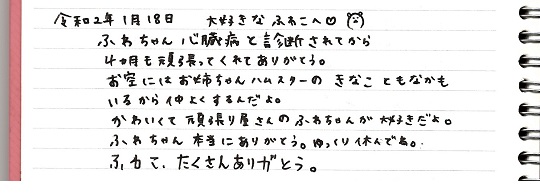 令和2年1月18日 大好きなふわこへ♡
ふわちゃん心臓病と診断されてから
4ヵ月も頑張ってくれてありがとう。
お空にはお姉ちゃんハムスターの きなこ ともなかも
いるから仲よくするんだよ。
かわいくて 頑張り屋さんの ふわちゃんが 大好きだよ。
ふわちゃん 本当にありがとう。ゆっくり休んでね。
ふわて、たくさんありがとう。